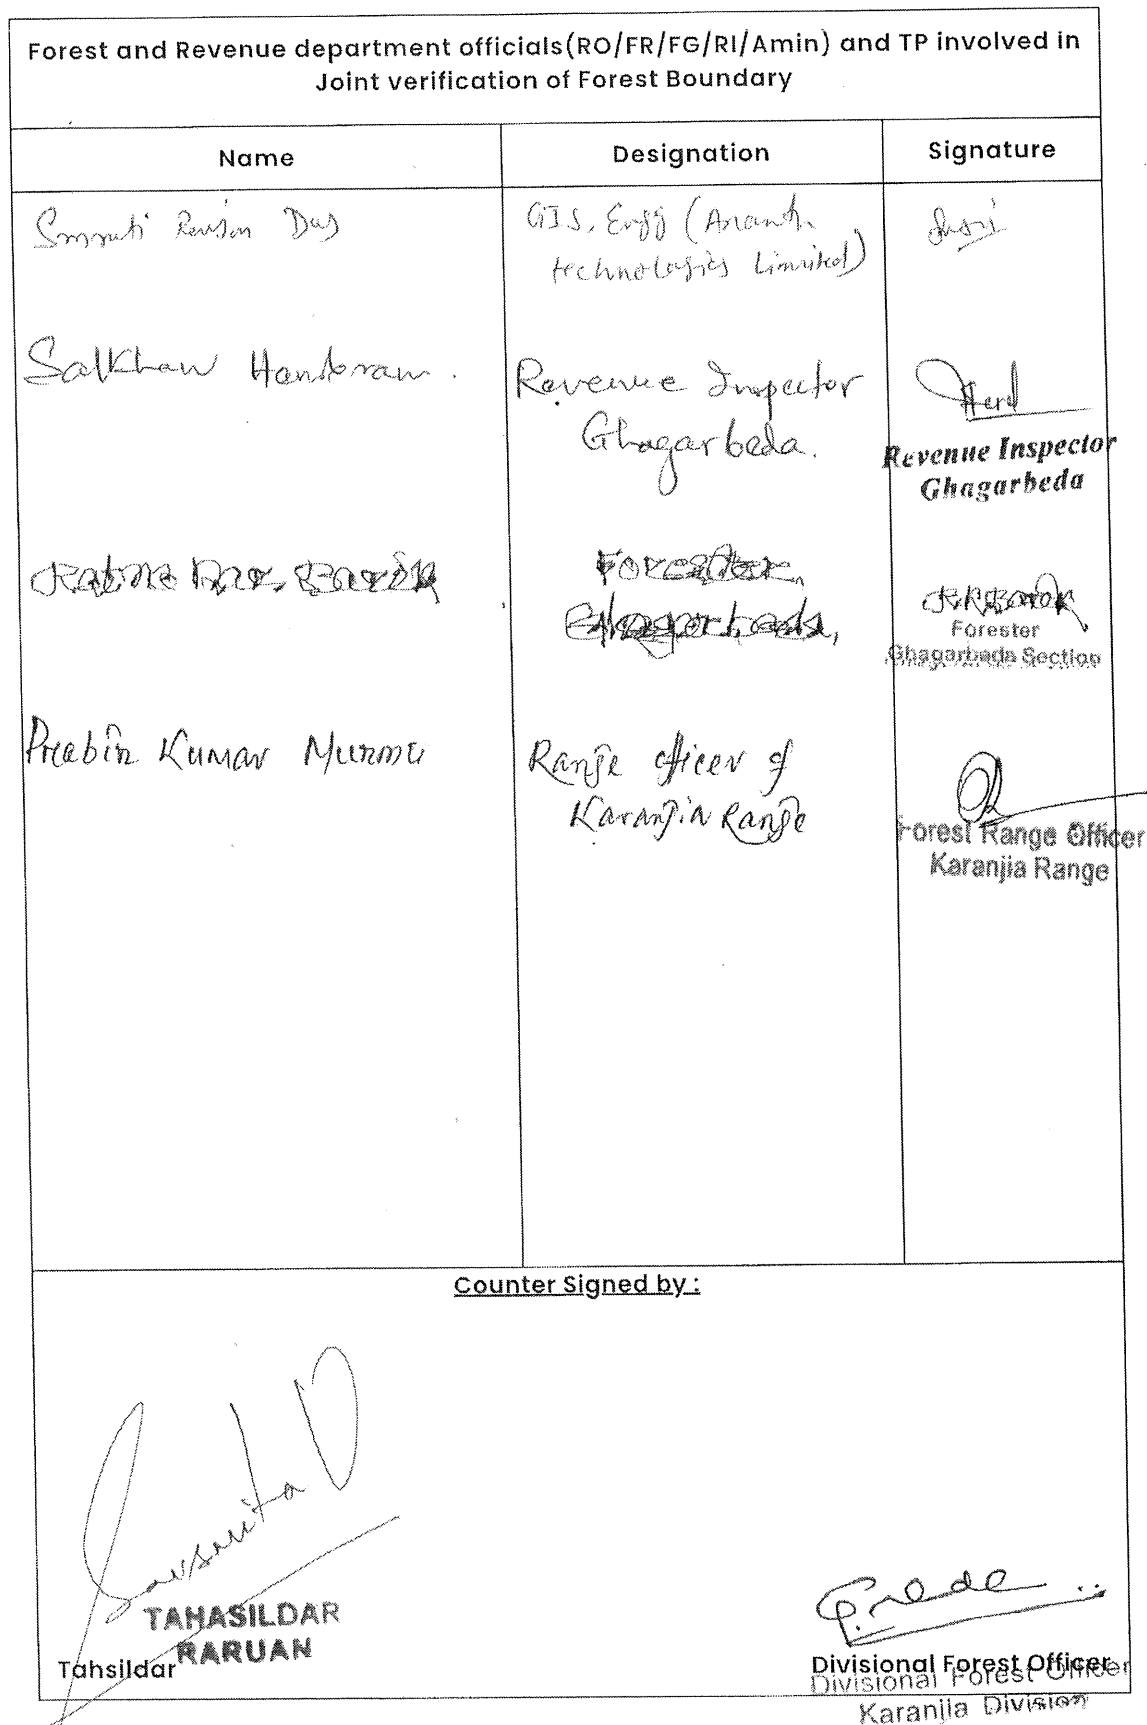 Forest and Revenue department officials(RO/FR/FG/RI/Amin) and TP involved in
Joint verification of Forest Boundary
Name Designation Signature
Smruti Ranjan Das GIS. Engg (Ananth
technologies Limited)
Salkhan Hansram. Revenue Inspector
Ghagarbeda.
Revenue Inspector
Ghagarbeda
Ratna Kar Barik Forester,
Ghagarbeda, R.K.Barik
Forester
Ghagarbeda Section
Prabin Kumar Murmu Range officer of
Karanjia Range
Forest Range Officer
Karanjia Range
Counter Signed by :
TAHASILDAR
RARUAN
Tahsildar
Divisional Forest Officer
Divisional Forest Officer
Karanjia Division